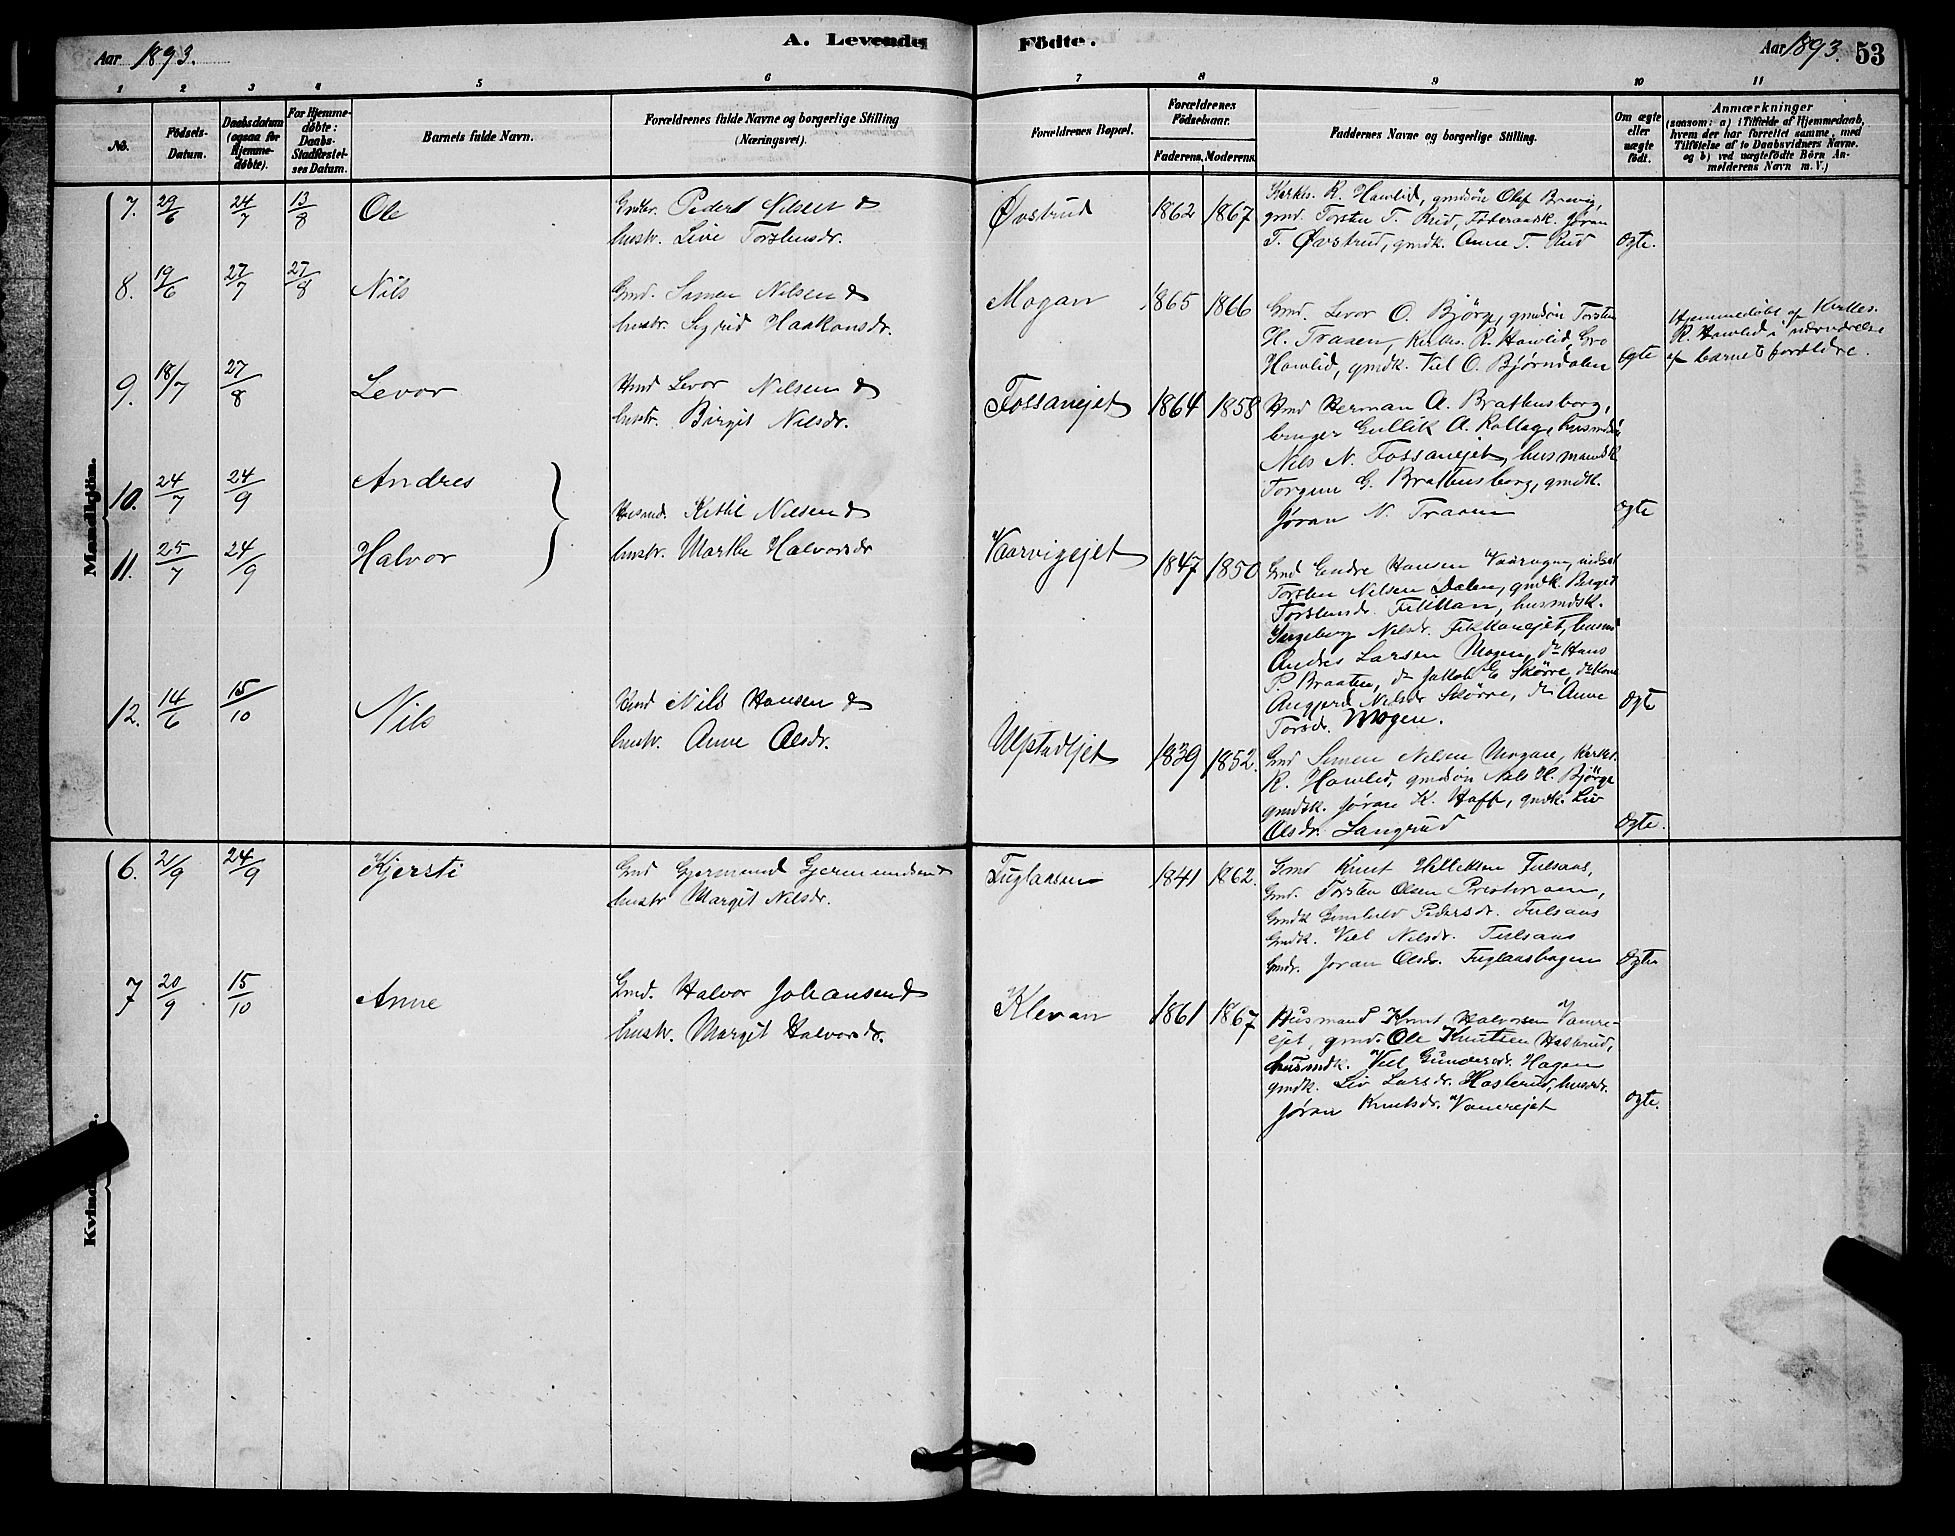 Aar 1893.
A. Levende
Födte.
Aar 1893. 53
1 2 3 4 5 6 7 8 9 10 11
No.
Födsels-Datum.
Daabsdatum (ogsaa for Hjemmedöbte).
For Hjemmedöbte: Daabs-Stadfæstelses Datum.
Barnets fulde Navn.
Forældrenes fulde Navne og borgerlige Stilling (Næringsvei).
Forældrenes Bopæl.
Forældrenes Födselsaar.
Faderens. Moderens.
Faddernes Navne og borgerlige Stilling.
Om ægte eller uægte födt.
Anmærkninger
(saasom: a) i Tilfælde af Hjemmedaab, hvem der har forrettet samme, med Tilföielse af to Daabsvidners Navne. og b) ved uægtefödte Börn Anmelderens Navn m. V.)
Mandkjön.
7. 29/6 24/7 13/8 Ole
Gmbr. Peder Nilsen &
hustr. Live Torstensdr.
Øvstrud 1862 1867
Kirkes. R. Hawlid, gmdsön Olef Brevig,
gmd. Torsten T. Rud, Föderaadsk. Jøran
T. Øvstrud, gmdk. Anne T. Rud ægte.
8. 19/6 27/7 27/8 Nils
Gmd. Simen Nilsen &
hustr. Sigrid Haakonsdr.
Mogan 1865 1866
Gmd. Levor O. Bjørge, gmdsön Torsten
H. Traaen, Kirkes. R. Hawlid, Gro
Hawlid, gmdk. Viel O. Bjørndalen ægte
Hjemmedöbt af Kirkes.
R. Hawlid i nærværelse
af barnets forældre.
9. 18/7 27/8 Levor
Hmd Levor Nilsen &
hustr. Birgit Nilsdr.
Fossanejet 1864 1858
Hmd Herman A. Brathusborg,
bruger Gullik A. Rollag, husmdsön
Nils N. Fossanejet, husmandsk
Torgun G. Brathusborg, gmdk.
Jøran N. Traaen ægte
10. 24/7 24/9 Andres
11. 25/7 24/9 Halvor
Husmd. Kittil Nilsen &
hustr. Marthe Halvorsdr
Vaarvigejet 1847 1850
Gmd Endre Hansen
Torsten Nilsen Dalen, gmdk. Berget
Torstensdr. Fikkan, husmdsk.
Ingeborg Nilsdr. Fikkanejet, husm
Andres Larsen Mogen, do Hans
P. Braaten, do Jakob E Skörre, do kone
Angjerd Nilsdr Skörre, do Anne
Torsdr. Mogen. ægte
12. 14/6 15/10 Nils
Hmd Nils Hansen &
hustr. Anne Olsdr.
Ulstadejet 1839 1852.
Gmd Simen Nilsen Mogan, Kirkes.
R. Hawlid, gmdsön Nils H. Björge
gmdsk. Jöran K. Hoff, gmdk. Liv
Olsdr. Langrud ægte.
6. 2/9 24/9 Kjersti
Gmd Gjermund Gjermundsen &
hustr Margit Nilsdr.
Fuglaasen 1841 1862.
Gmd Knut Helleksen Fulsaas,
Gmd. Torsten Olsen Prestmoen,
Gmdk Gunhild Pedersdr. Fulsaas
Gmdk. Viel Nilsdr. Fulsaas
Gmdr. Joran Olsdr. Fuglaashagen ægte
7 20/9 15/10 Anne
Gmd. Halvor Johansen &
hustr. Margit Halvorsdr.
Klevan 1861 1867
Husmand Knut Halvorsen
ejet, gmd. Ole Knutsen Hasterud,
husmdk. Viel Gundersdr. Hagen
gmdk. Liv Larsdr. Hasterud, husmdr.
Jøran Knutsdr. ægte.